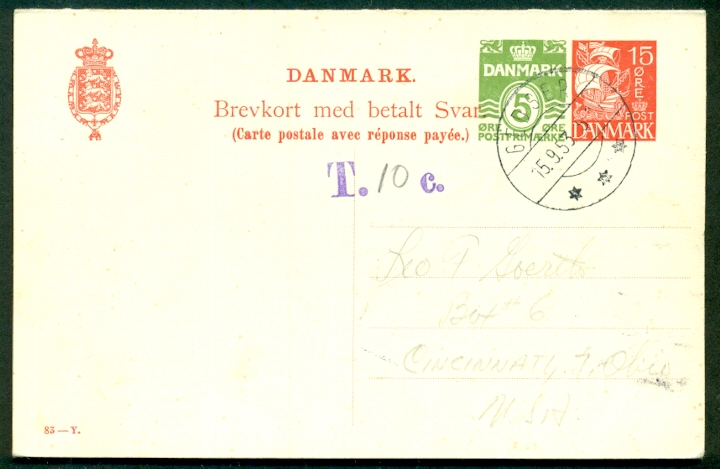 DANMARK.
Brevkort med betalt Svar
(Carte postale avec réponse payée.)
DANMARK
5
ØRE ØRE
POSTFRIMÆRKE
15
ØRE
POST
DANMARK
15.9.53
T. 10 c.
Leo F
Box # 6
Cincinnati, Ohio
USA
83—Y.